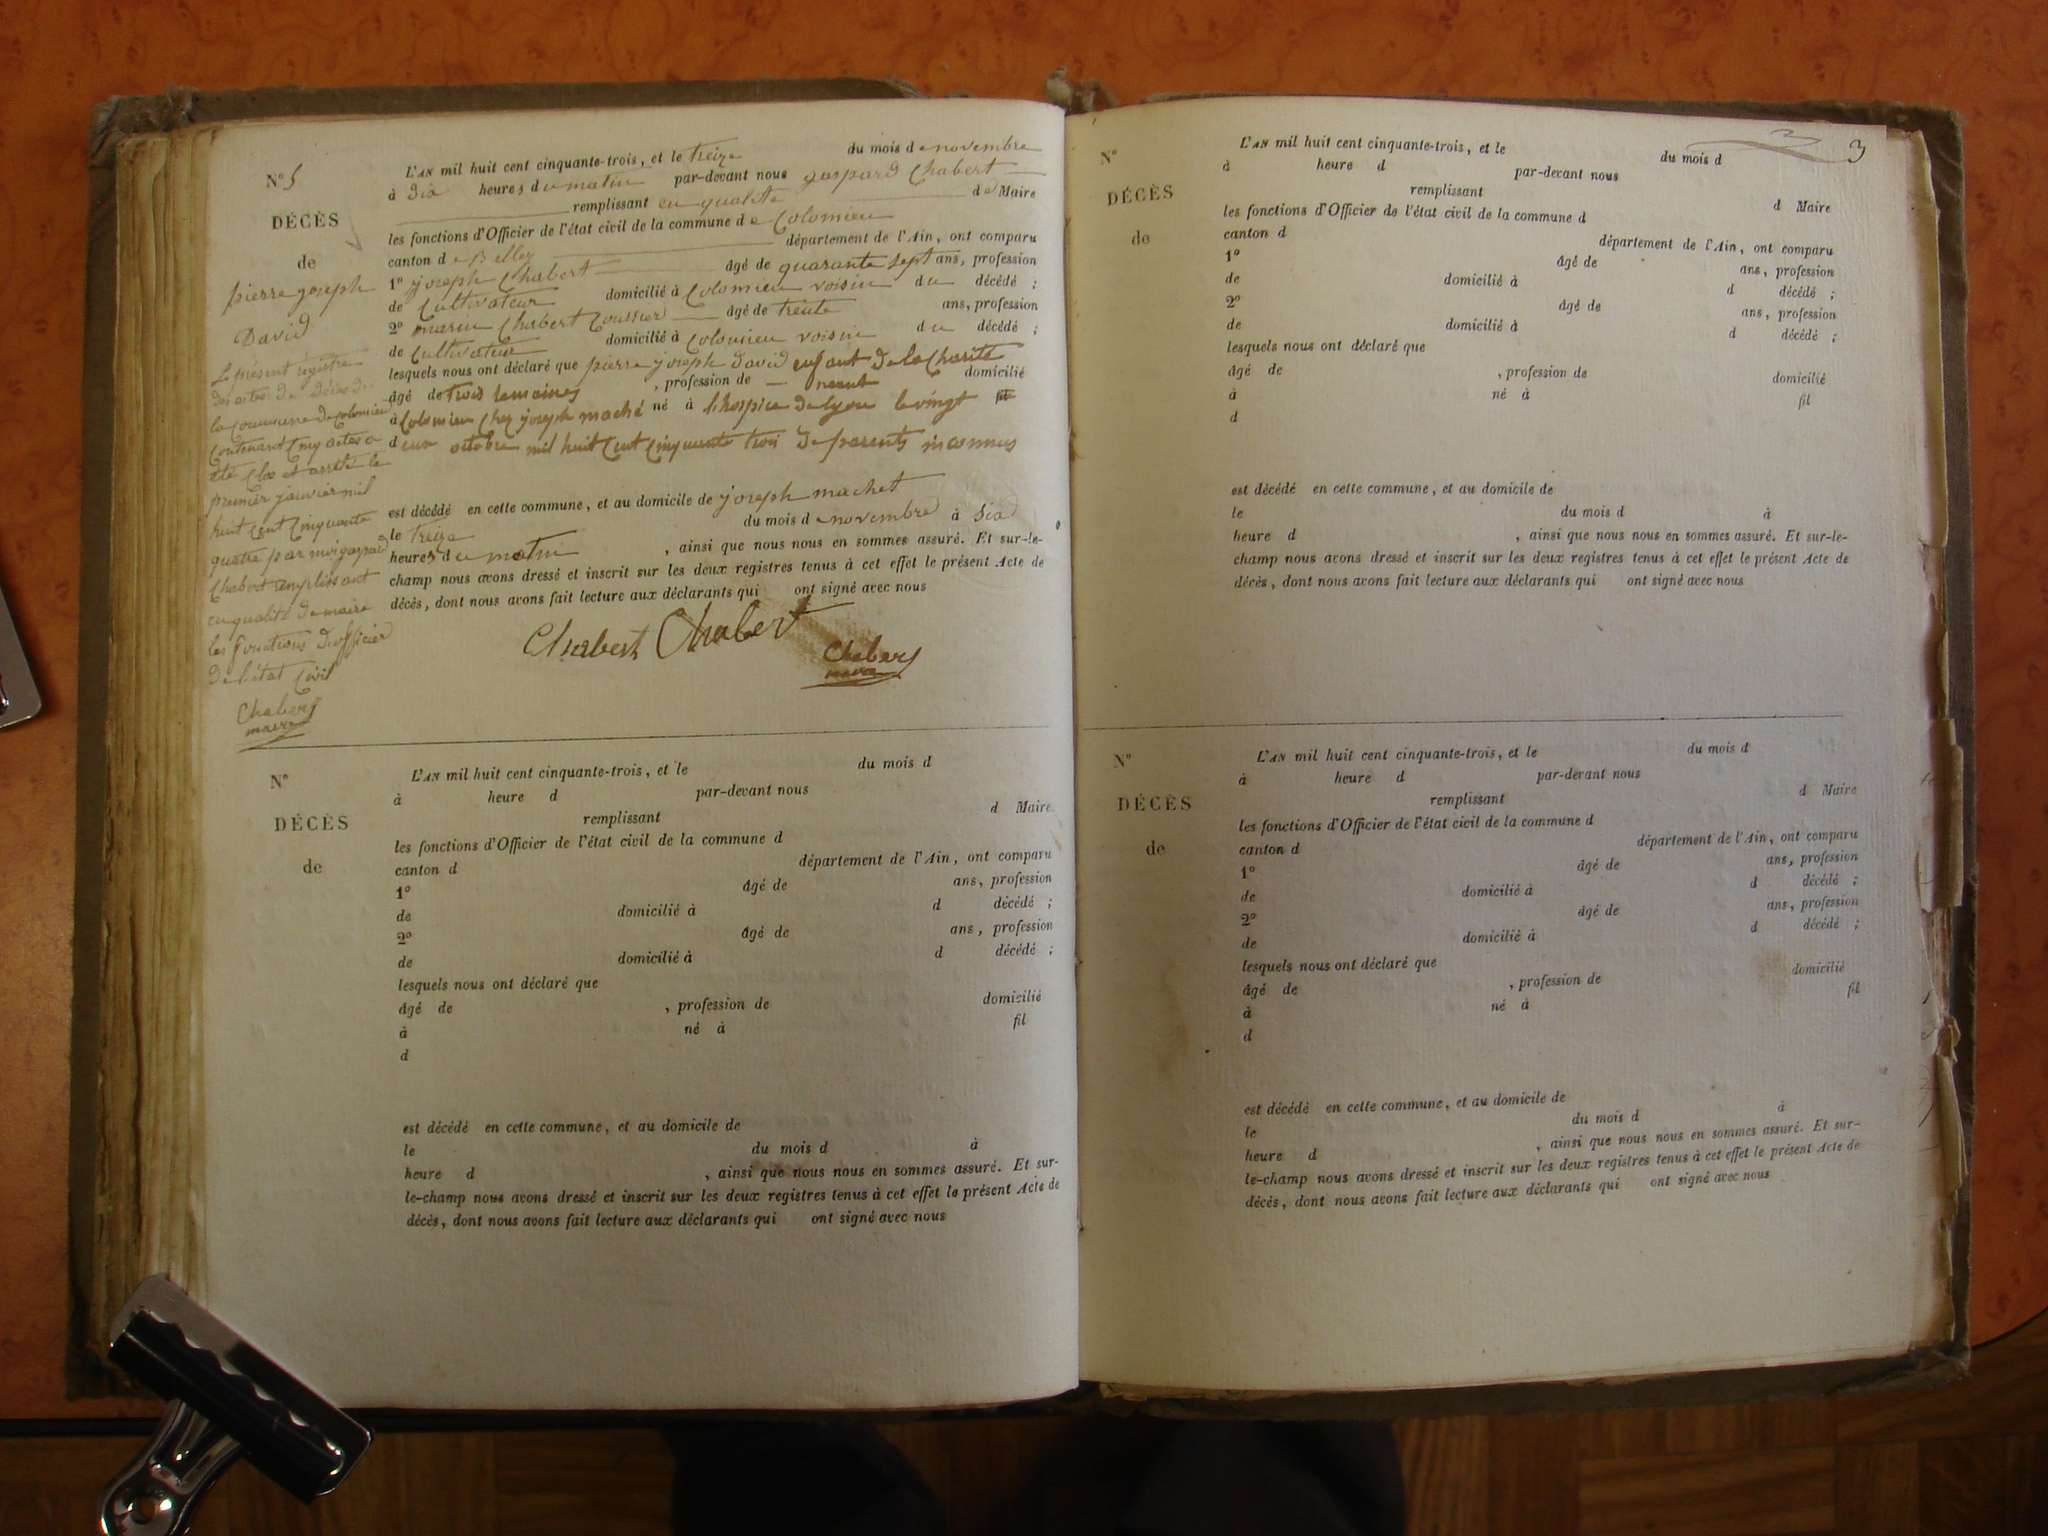 N° 5
DÉCÈS
de
pierre joseph
David
Le présent registre
des actes de décès de
la Commune de Colomieu
Contenant Cinq actes a
été Clos et arrêté le
premier janvier mil
huit Cent Cinquante
quatre par moi gaspard
Chabert remplissant
en qualité de maire
les fonctions d'officier
de l'état Civil
Chabert
maire
L'AN mil huit cent cinquante-trois, et le treize du mois de novembre
à dix heures du matin par-devant nous gaspard Chabert
remplissant en qualité de Maire
les fonctions d'Officier de l'état civil de la commune de Colomieu
canton de Belley département de l'Ain, ont comparu
1° joseph Chabert âgé de quarante sept ans, profession
de Cultivateur domicilié à Colomieu voisin du décédé ;
2° marin Chabert âgé de trente ans, profession
de Cultivateur domicilié à Colomieu voisin du décédé ;
lesquels nous ont déclaré que pierre joseph david enfant de la Charité
âgé de trois semaines , profession de néant domicilié
à Colomieu Chez joseph maché né à l'hospice de lyon le vingt fil
d un octobre mil huit Cent Cinquante trois de parents inconnus
est décédé en cette commune, et au domicile de joseph machet
le treize du mois de novembre à six
heures du matin , ainsi que nous nous en sommes assuré. Et sur-le-
champ nous avons dressé et inscrit sur les deux registres tenus à cet effet le présent Acte de
décès, dont nous avons fait lecture aux déclarants qui ont signé avec nous
Chabert Chabert
Chabert
maire
N°
DÉCÈS
de
L'AN mil huit cent cinquante-trois, et le du mois d
à heure d par-devant nous
remplissant d Maire
les fonctions d'Officier de l'état civil de la commune d
canton d département de l'Ain, ont comparu
1° âgé de ans, profession
de domicilié à d décédé ;
2° âgé de ans, profession
de domicilié à d décédé ;
lesquels nous ont déclaré que
âgé de , profession de domicilié
à né à fil
d
est décédé en cette commune, et au domicile de
le du mois d à
heure d , ainsi que nous nous en sommes assuré. Et sur-
le-champ nous avons dressé et inscrit sur les deux registres tenus à cet effet le présent Acte de
décès, dont nous avons fait lecture aux déclarants qui ont signé avec nous
3
N°
DÉCÈS
de
L'AN mil huit cent cinquante-trois, et le du mois d
à heure d par-devant nous
remplissant d Maire
les fonctions d'Officier de l'état civil de la commune d
canton d département de l'Ain, ont comparu
1° âgé de ans, profession
de domicilié à d décédé ;
2° âgé de ans, profession
de domicilié à d décédé ;
lesquels nous ont déclaré que
âgé de , profession de domicilié
à né à fil
d
est décédé en cette commune, et au domicile de
le du mois d à
heure d , ainsi que nous nous en sommes assuré. Et sur-le-
champ nous avons dressé et inscrit sur les deux registres tenus à cet effet le présent Acte de
décès, dont nous avons fait lecture aux déclarants qui ont signé avec nous
N°
DÉCÈS
de
L'AN mil huit cent cinquante-trois, et le du mois d
à heure d par-devant nous
remplissant d Maire
les fonctions d'Officier de l'état civil de la commune d
canton d département de l'Ain, ont comparu
1° âgé de ans, profession
de domicilié à d décédé ;
2° âgé de ans, profession
de domicilié à d décédé ;
lesquels nous ont déclaré que
âgé de , profession de domicilié
à né à fil
d
est décédé en cette commune, et au domicile de
le du mois d à
heure d , ainsi que nous nous en sommes assuré. Et sur-
le-champ nous avons dressé et inscrit sur les deux registres tenus à cet effet le présent Acte de
décès, dont nous avons fait lecture aux déclarants qui ont signé avec nous